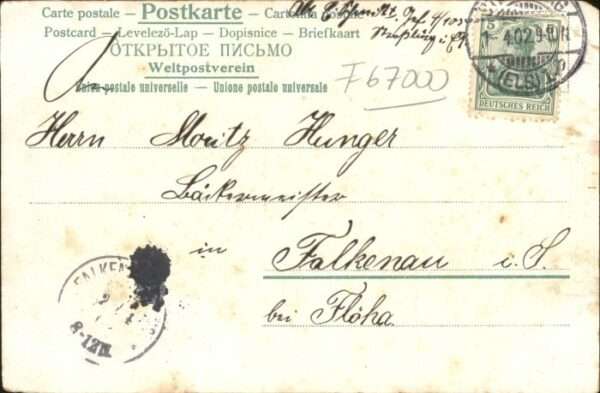 Carte postale — Postkarte — Cartolina postale
Postcard — Levelező-Lap — Dopisnice — Briefkaart
ОТКРЫТОЕ ПИСЬМО
Weltpostverein
Union postale universelle — Unione postale universale
F 67000
5
1 4.02 9-10N
(ELS)
DEUTSCHES REICH
Herrn Moritz Hunger
Bäckermeister
in Falkenau i. S.
bei Flöha.
FALKEN
8-12N.